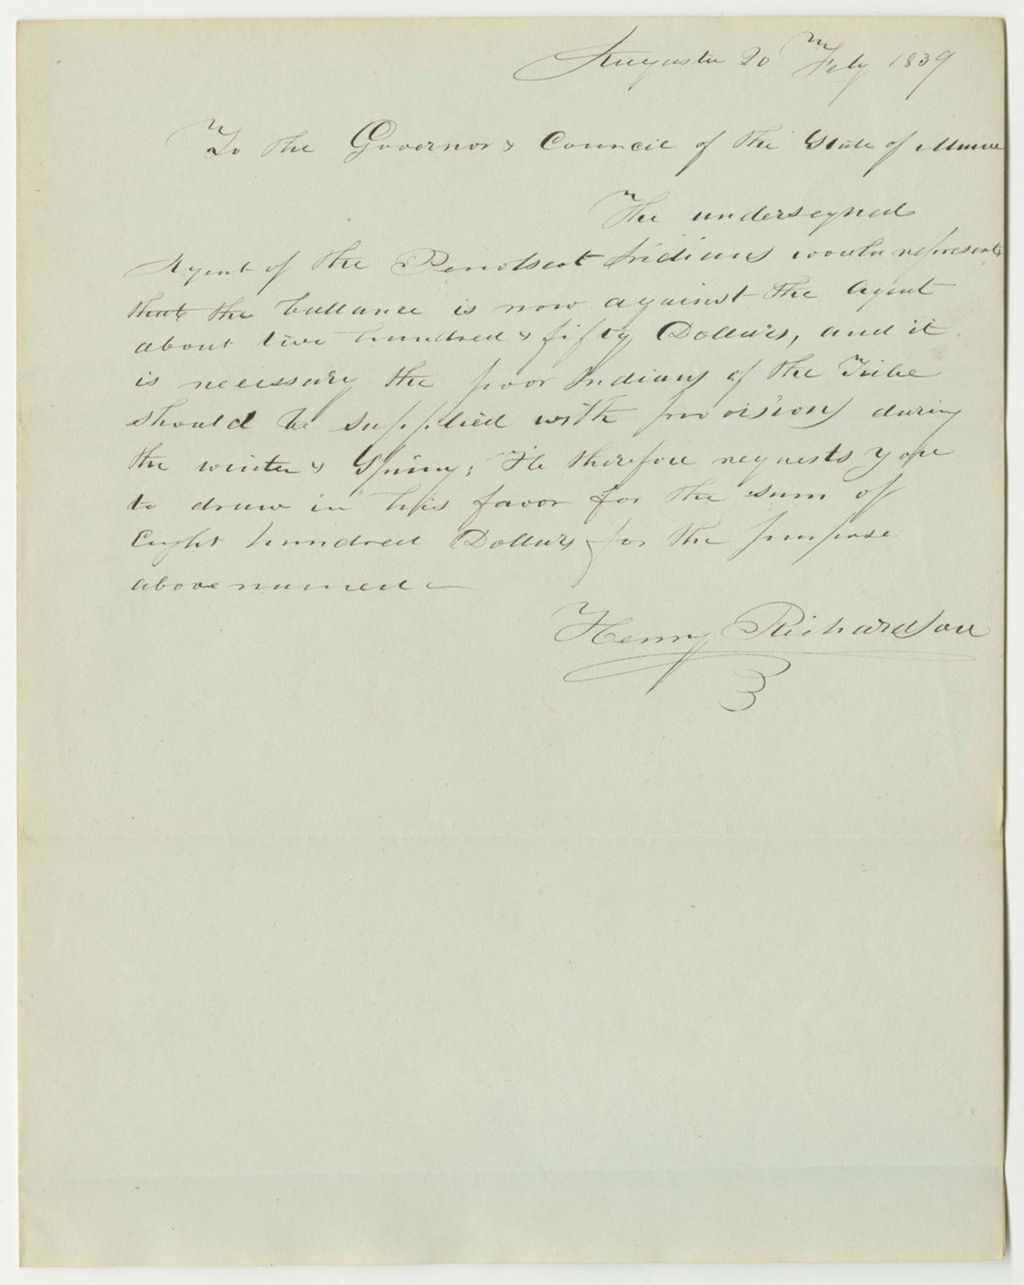 Augusta 20th Feby 1839
To the Governor & Council of the State of Maine
The undersigned
Agent of the Penobscot Indians would represent
that the ballance is now against the Agent
about two hundred & fifty Dollars, and it
is necessary the poor Indians of the Tribe
should be supplied with provisions during
the winter & Spring; He therefore requests you
to draw in his favor for the sum of
Eight hundred Dollars for the purpose
above named
Henry Richardson